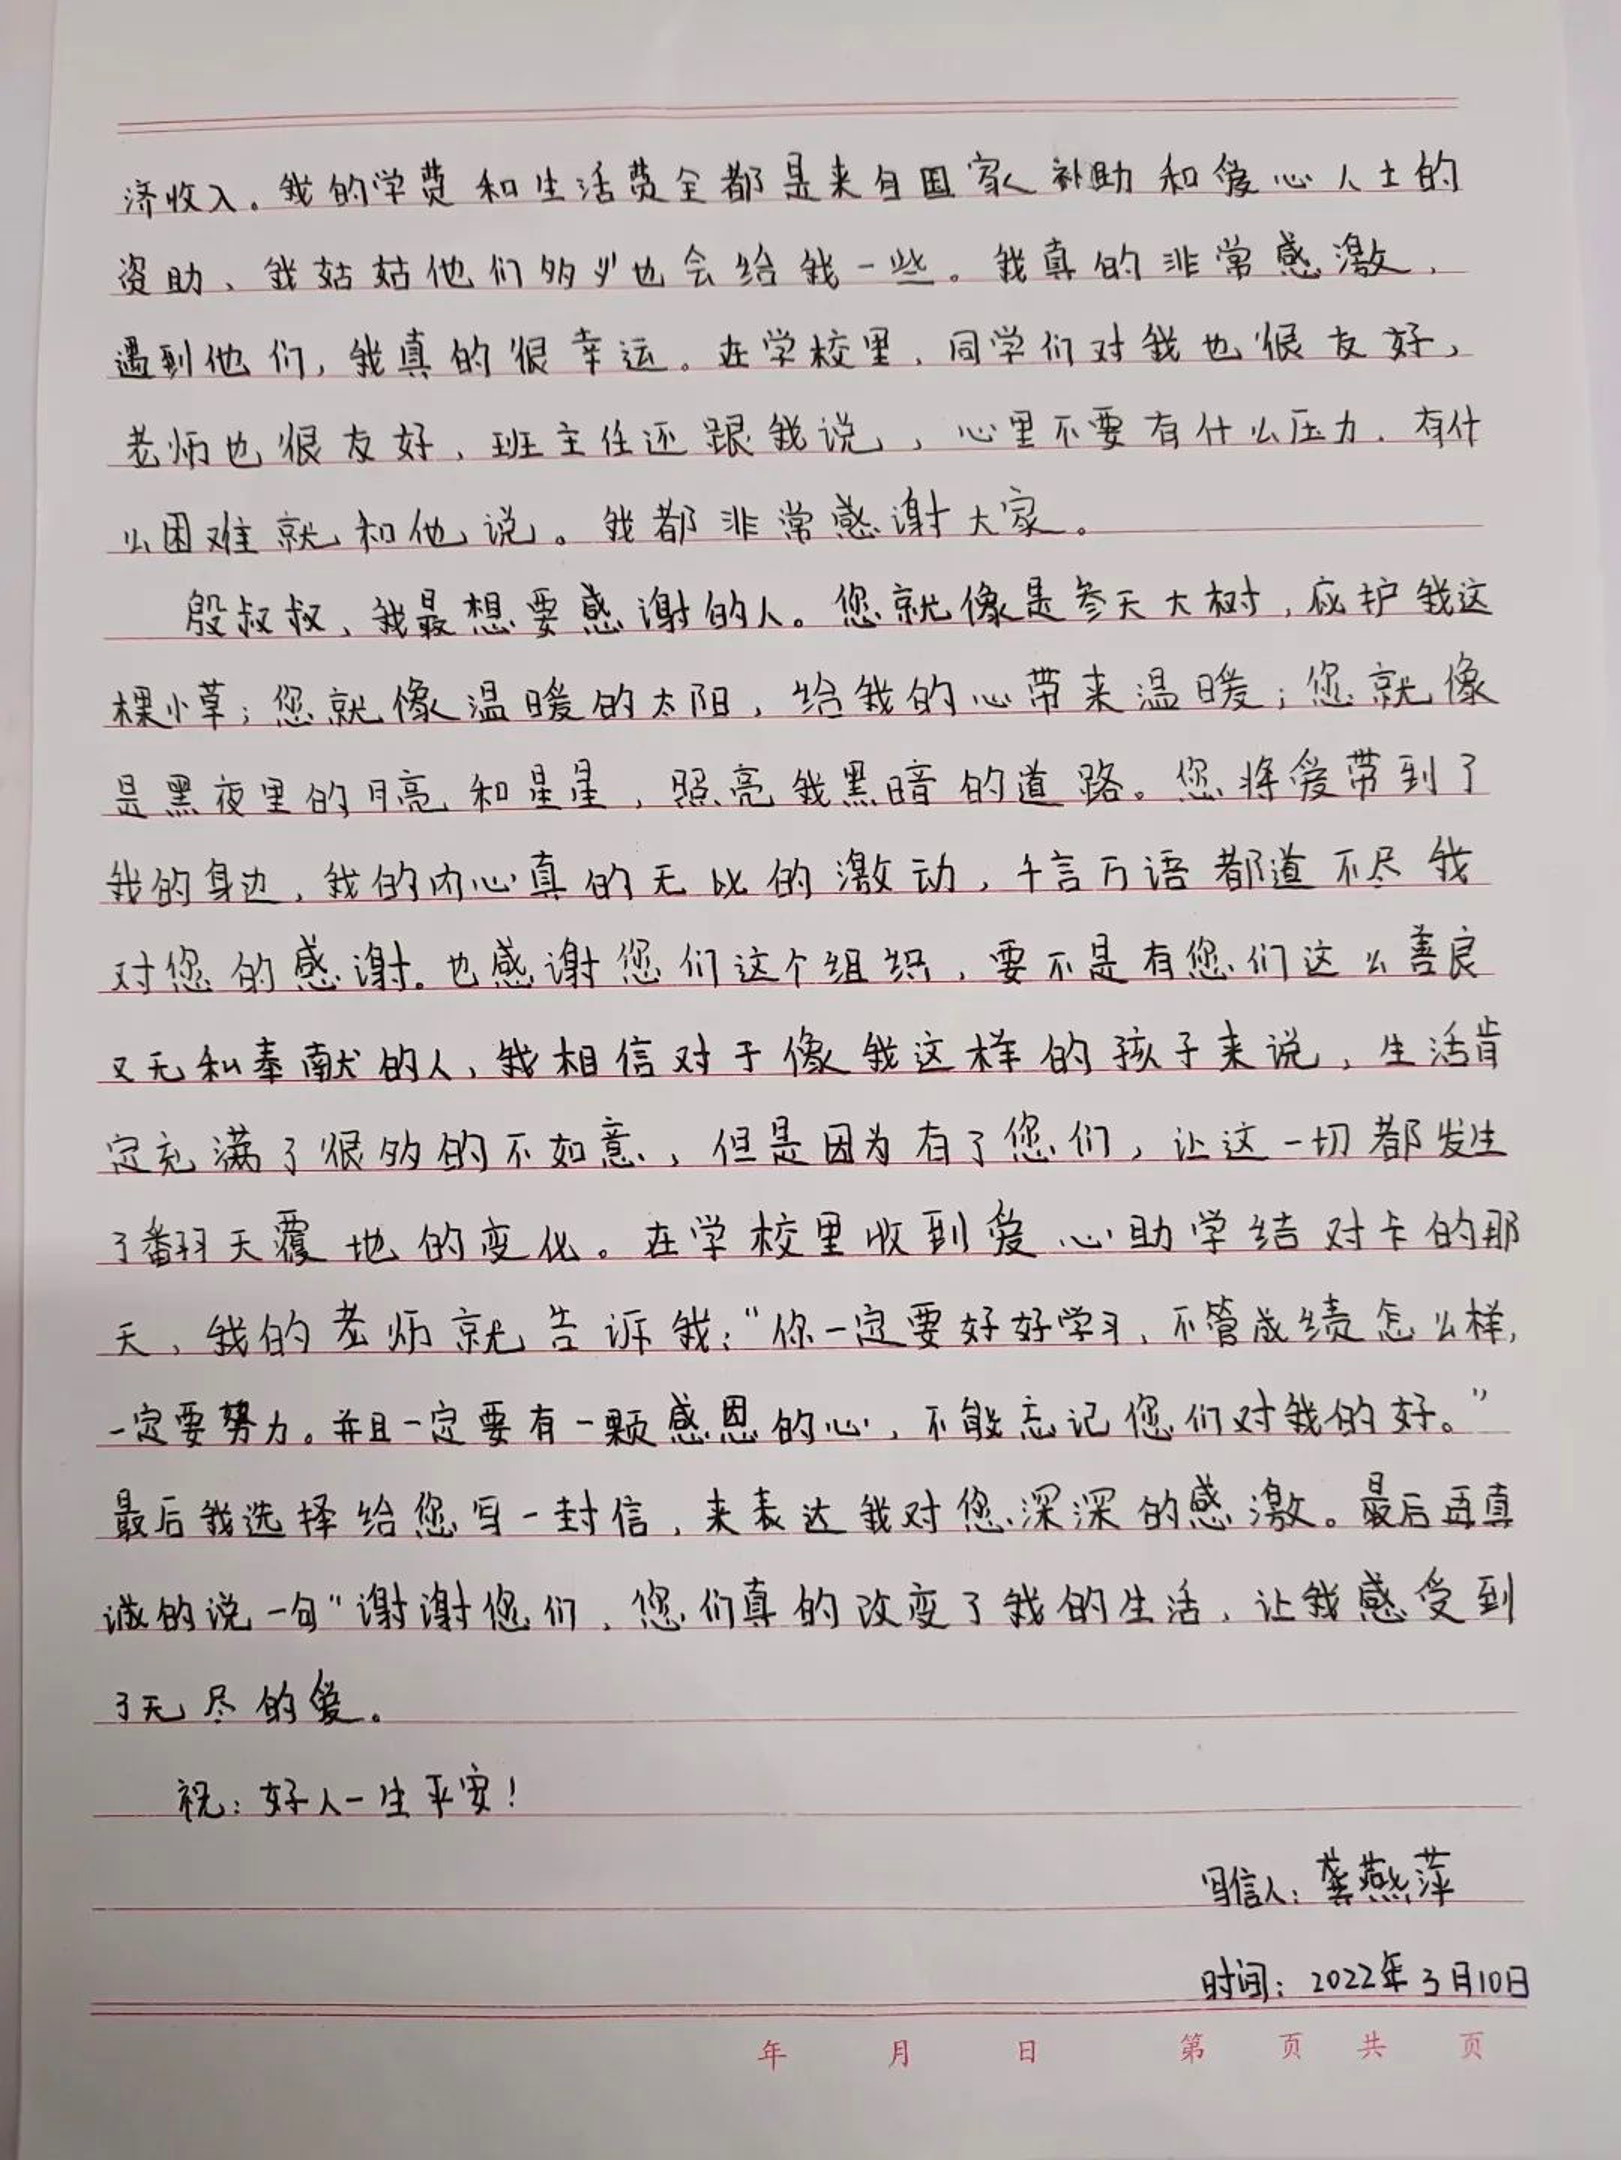 济收入。我的学费和生活费全都是来自国家补助和爱心人士的
资助、我姑姑他们多少也会给我一些。我真的非常感激，
遇到他们，我真的很幸运。在学校里，同学们对我也很友好，
老师也很友好，班主任还跟我说，心里不要有什么压力，有什
么困难就和他说。我都非常感谢大家。
殷叔叔、我最想要感谢的人。您就像是参天大树，庇护我这
棵小草；您就像温暖的太阳，给我的心带来温暖；您就像
是黑夜里的月亮和星星，照亮我黑暗的道路。您将爱带到了
我的身边，我的内心真的无比的激动，千言万语都道不尽我
对您的感谢。也感谢您们这个组织，要不是有您们这么善良
又无私奉献的人，我相信对于像我这样的孩子来说，生活肯
定充满了很多的不如意，但是因为有了您们，让这一切都发生
了翻天覆地的变化。在学校里收到爱心助学结对卡的那
天，我的老师就告诉我：“你一定要好好学习，不管成绩怎么样，
一定要努力。并且一定要有一颗感恩的心，不能忘记您们对我的好。”
最后我选择给您写一封信，来表达我对您深深的感激。最后再真
诚的说一句“谢谢您们，您们真的改变了我的生活，让我感受到
了无尽的爱。
祝：好人一生平安！
写信人：龚燕萍
时间：2022年3月10日
年 月 日 第 页 共 页